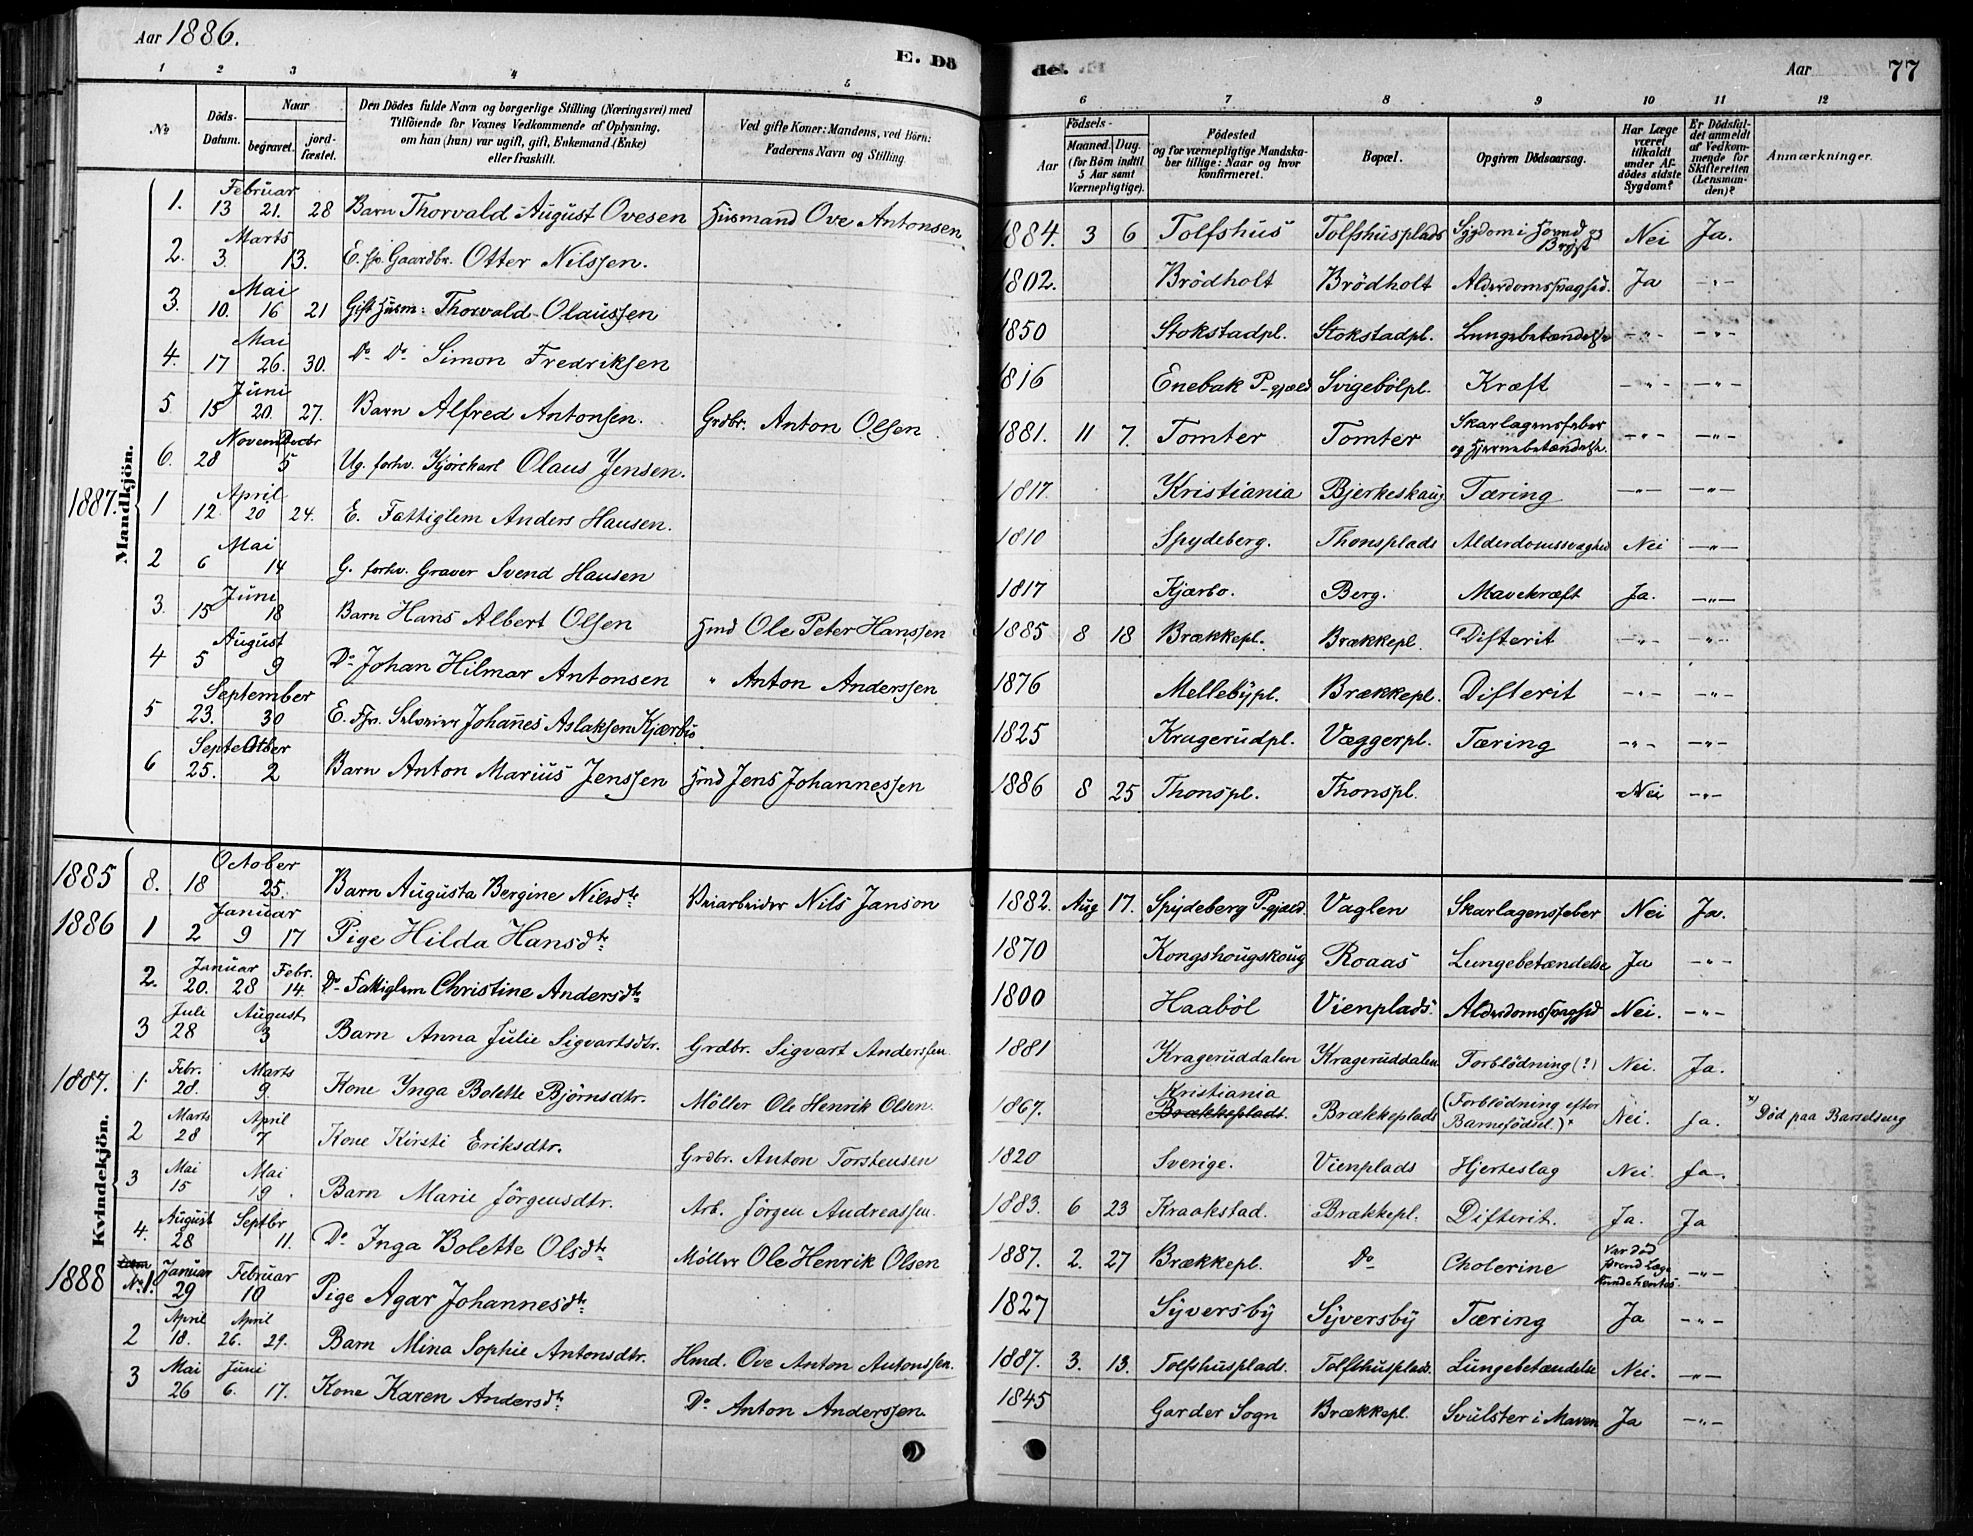 Aar 1886.
E. Dö
de.
Aar
77
1 2 3 4 5
6 7 8 9 10 11 12
No
Döds-Datum.
Naar
begravet.
jordfæstet.
Den Dödes fulde Navn og borgerlige Stilling (Næringsvei) med
Tilföiende for Voxnes Vedkommende af Oplysning,
om han (hun) var ugift, gift, Enkemand (Enke)
eller fraskilt.
Ved gifte Koner: Mandens, ved Börn:
Faderens Navn og Stilling.
Födsels-
Aar
Maaned. Dag.
(for Börn indtil
5 Aar samt
Værnepligtige).
Födested
og for værnepligtige Mandskaber tillige: Naar og hvor
konfirmeret.
Bopæl.
Opgiven Dödsaarsag.
Har Læge
været
tilkaldt
under Afdödes sidste
Sygdom?
Er Dödsfaldet anmeldt
af Vedkommende for
Skifteretten
(Lensmanden)?
Anmærkninger.
Mandkjön.
Februar
1. 13 21. 28 Barn Thorvald August Ovesen Husmand Ove Antonsen 1884. 3 6 Tolfshus Tolfshusplads Sygdom i Hoved og Bryst Nei Ja.
Marts
2. 3. 13. E. fhv. Gaardbr. Otter Nilssen. 1802. Brödholt Brödholt Alderdomssvaghed. Ja -"-
Mai
3. 10. 16 21 Gift Husm: Thorvald Olaussen 1850 Stokstadpl. Stokstadpl. Lungebetændelse -"- -"-
Mai
4. 17 26. 30. Do Do Simon Fredriksen 1816 Enebak P-gjæld Svigebölpl. Kræft -"- -"-
Juni
5 15 20. 27. Barn Alfred Antonsen. Grdbr. Anton Olsen 1881. 11 7. Tomter Tomter Skarlagensfeber og Hjernebetændelse. -"- -"-
November Decbr
6. 28 5 Ug. forhv. Kjörekarl Olaus Jensen. 1817. Kristiania Bjerkeskaug Tæring -"- -"-
1887.
April
1 12. 20 24. E. Fattiglem Anders Hansen. 1810 Spydeberg. Thonsplads Alderdomssvaghed Nei -"-
Mai
2 6 14 G. forhv. Graver Svend Hansen 1817 Kjærbo. Berg. Mavekræft Ja. -"-
Juni
3. 15 18 Barn Hans Albert Olsen Hmd Ole Peter Hanssen 1885 8 18 Brækkepl. Brækkepl. Difterit -"- -"-
August
4 5 9 Do Johan Hilmar Antonsen " Anton Anderssen 1876 Mellebypl. Brækkepl. Difterit -"- -"-
September
5 23. 30 E. Fhv. Selveier Johanes Aslaksen Kjærbo 1825 Kragerudpl. Væggerpl. Tæring -"- -"-
Septem Otber
6 25. 2 Barn Anton Marius Jenssen Hmd Jens Johannessen 1886 8 25 Thonspl. Thonspl. Nei -"-
Kvindekjön.
1885
October
8. 18 25. Barn Augusta Bergine Nilsdtr Veiarbeider Nils Janson 1882. Aug 17. Spydeberg P-gjæld. Vaglen Skarlagensfeber Nei Ja.
1886
Januar
1 2 9 17 Pige Hilda Hansdtr 1870 Kongshougskoug Roaas Lungebetændelse Ja -"-
Januar Febr.
2. 20. 28 14. Do Fattiglem Christine Andersdtr 1800 Haaböl Vienplads. Alderdomssvaghed Nei. -"-
Juli August
3 28 3 Barn Anna Julie Sigvartsdtr. Grdbr. Sigvart Anderssen. 1881 Krageruddalen Krageruddalen Forblödning (?) Nei. Ja.
1887.
Febr. Marts
1. 28. 9. Kone Ynga Bolette Björnsdtr. Möller Ole Henrik Olsen. 1867. Kristiania Brækkeplads. Brækkeplads (Forblödning efter Barnefödsel)* Nei. Ja. *) Död paa Barselseng
Marts April
2 28 7 Kone Kirsti Eriksdtr. Grdbr. Anton Torstensen 1820 Sverige. Vienplads Hjerteslag Nei. Ja.
Mai Mai
3 15 19. Barn Marie Jörgensdtr. Arb. Jörgen Andreassen. 1883. 6 23 Kraakstad. Brækkepl. Difterit. Ja. Ja
August Septbr
4. 28 11. Do Inga Bolette Olsdtr Möller Ole Henrik Olsen 1887. 2. 27 Brækkepl. Do Cholerine Var död förend Læge kunde hentes. -"-
1888
Januar Februar
No 1. 29 10 Pige Agar Johannesdtr 1827 Syversby Syversby Tæring Ja -"-
April April
2 18. 26. 29. Barn Mina Sophie Antonsdtr. Hmd. Ove Anton Antonssen. 1887. 3. 13. Tolfshusplads. Tolfshusplads. Lungebetændelse Nei. -"-
Mai Juni
3 26 6. 17. Kone Karen Andersdtr Do Anton Anderssen. 1845 Garder Sogn Brækkepl. Svulster i Maven Ja -"-